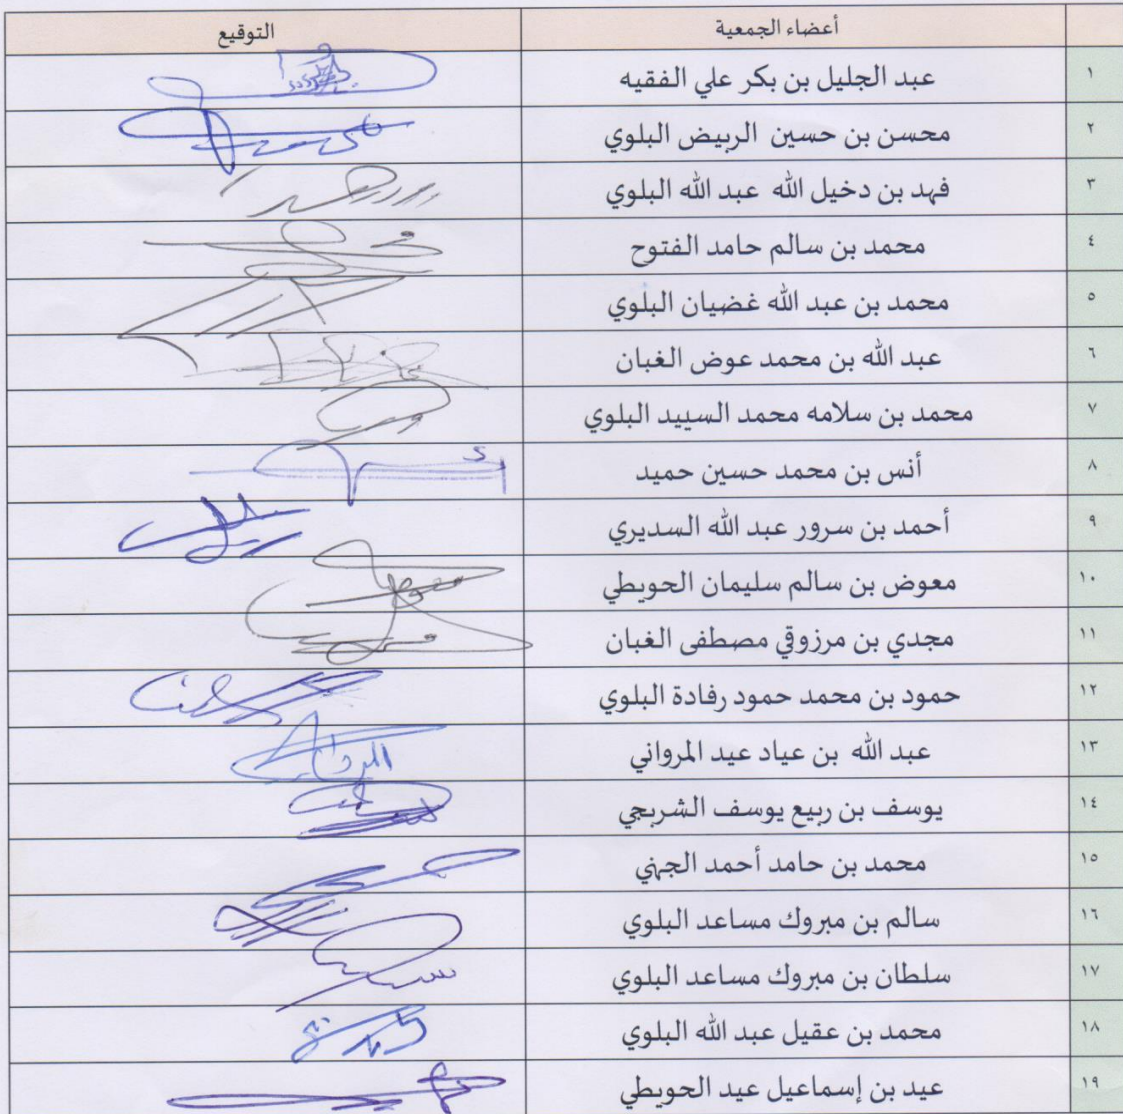 أعضاء الجمعية التوقيع
١ عبد الجليل بن بكر علي الفقيه
٢ محسن بن حسين الربيض البلوي
٣ فهد بن دخيل الله عبد الله البلوي
٤ محمد بن سالم حامد الفتوح
٥ محمد بن عبد الله غضيان البلوي
٦ عبد الله بن محمد عوض الغبان
٧ محمد بن سلامه محمد السييد البلوي
٨ أنس بن محمد حسين حميد
٩ أحمد بن سرور عبد الله السديري
١٠ معوض بن سالم سليمان الحويطي
١١ مجدي بن مرزوقي مصطفى الغبان
١٢ حمود بن محمد حمود رفادة البلوي
١٣ عبد الله بن عياد عيد المرواني
١٤ يوسف بن ربيع يوسف الشربجي
١٥ محمد بن حامد أحمد الجهني
١٦ سالم بن مبروك مساعد البلوي
١٧ سلطان بن مبروك مساعد البلوي
١٨ محمد بن عقيل عبد الله البلوي
١٩ عيد بن إسماعيل عيد الحويطي